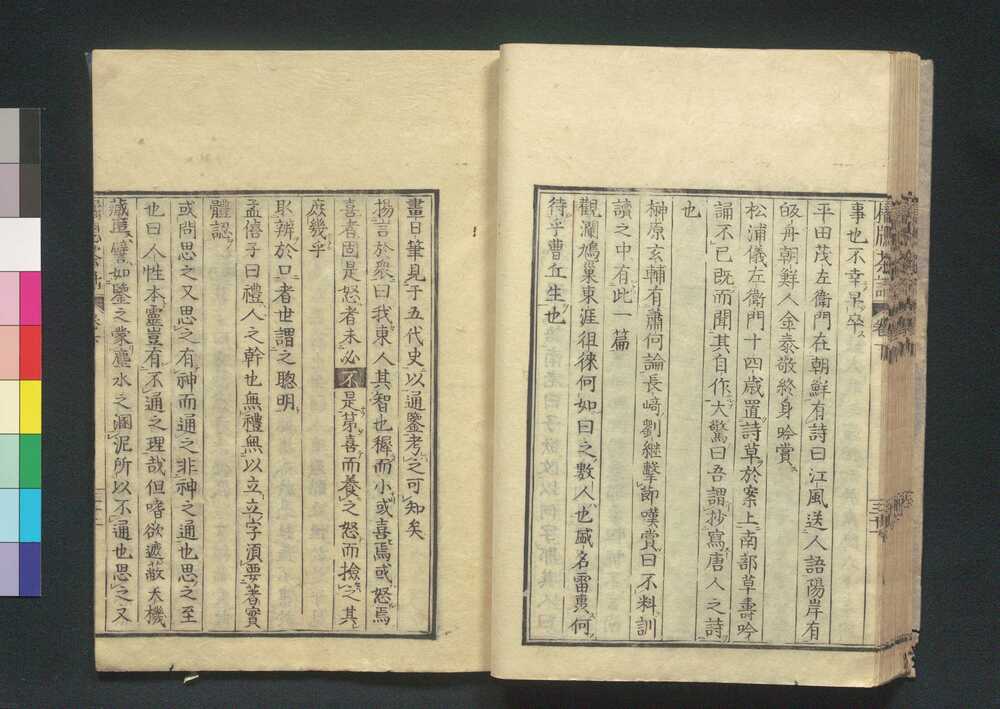 橘牕茶話 卷下
事也不幸早卒
平田茂左衛門在朝鮮有詩曰江風送人語陽岸有
皈舟朝鮮人金泰敬終身吟賞
松浦儀左衛門十四歲置詩草於案上南部草壽吟
誦不已既而聞其自作大驚曰吾謂抄寫唐人之詩
也
榊原玄輔有蕭何論長﨑劉繼擊節嘆賞曰不料訓
讀之中有此一篇
觀瀾鳩巢東涯徂徠何如曰之數人也盛名雷轟何
待乎曹丘生也
晝日筆見于五代史以通鑒考之可知矣
揚言於衆曰我東人其智也穉而小或喜焉或怒焉
喜者固是怒者未必不是苐喜而養之怒而撿之其
庶幾乎
取辨於口者世謂之聰明
孟僖子曰禮人之幹也無禮無以立立字湏要著實
體認
或問思之又思之有神而通之非神之通也思之至
也曰人性本靈豈有不通之理哉但嗜欲遮蔽天機
藏匿譬如鑒之蒙塵水之溷泥所以不通也思之又